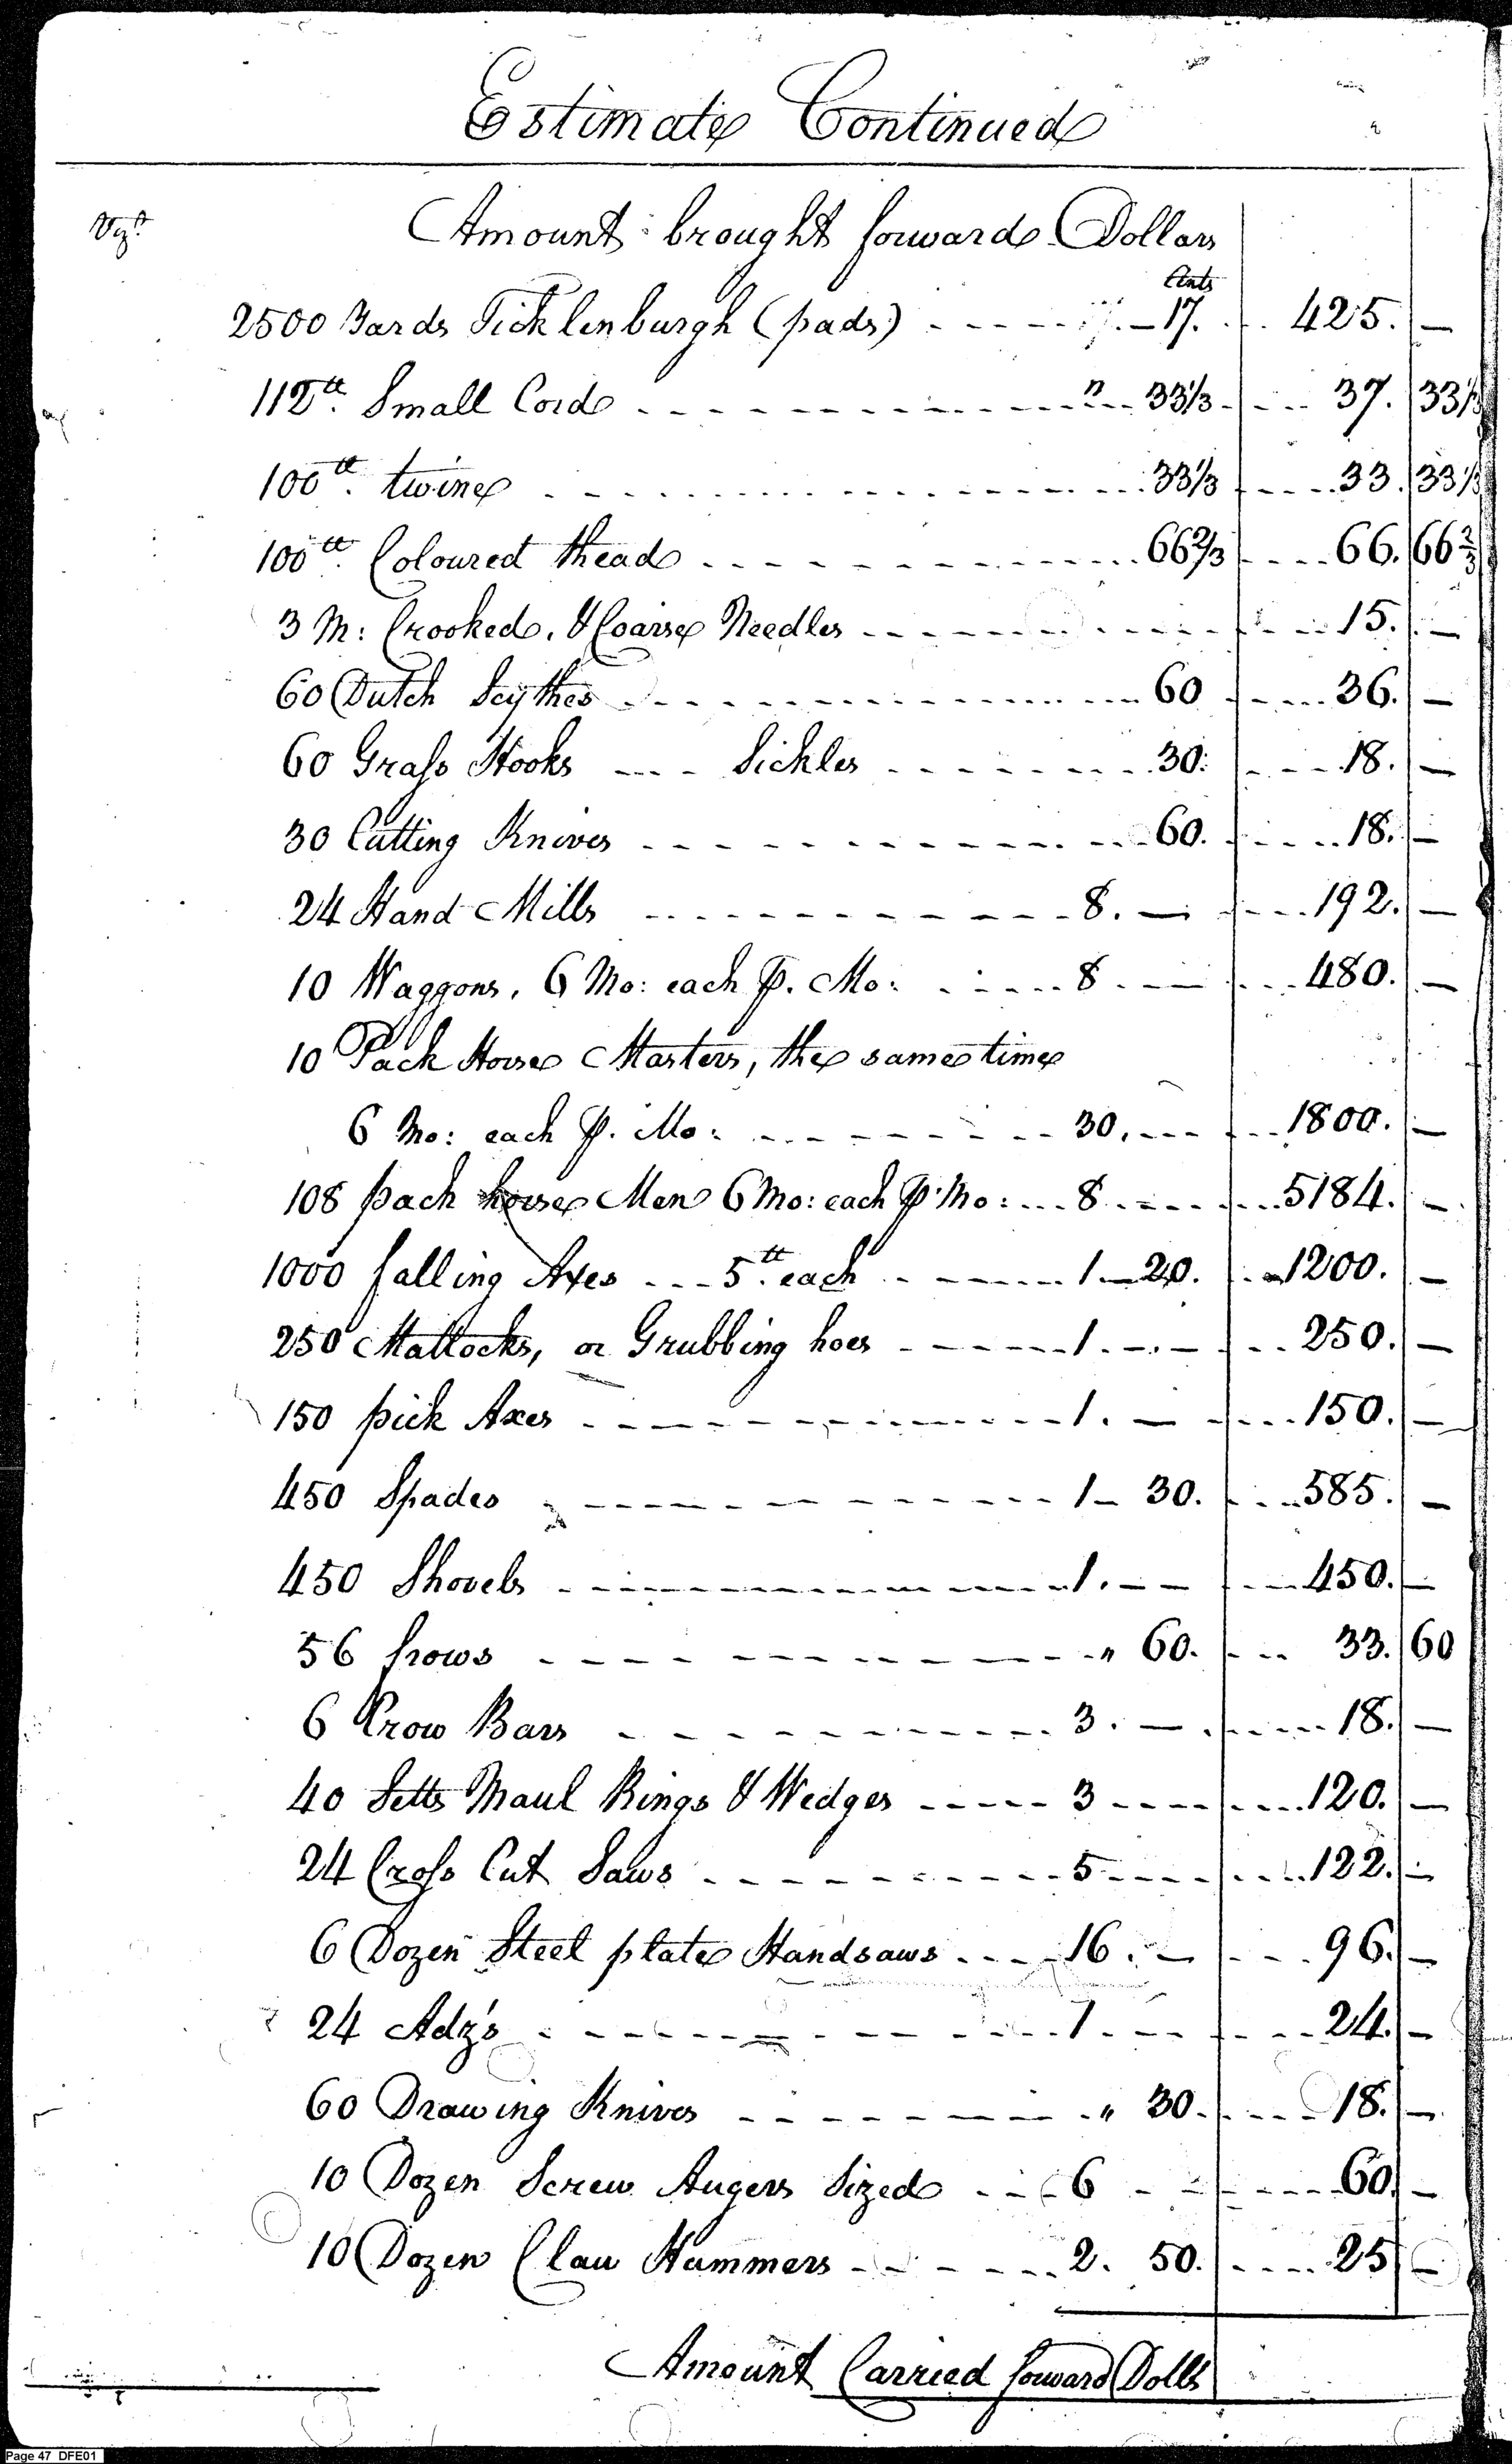 Estimate Continued
Vizt. Amount brought forward Dollars
Cents
2500 Yards Ticklenburgh (pads) - - - - - 17. - - 425. —
112tt. Small Cord - - - - - " - - 33 1/3 - - - 37. 33 1/3
100tt. twine - - - - - 33 1/3 - - - 33. 33 1/3
100tt. Coloured thead - - - - - 66 2/3 - - - 66. 66 2/3
3 M: Crooked, & Coarse Needles - - - - - 15. —
60 Dutch Scythes - - - - - 60 - - - 36. —
60 Grass Hooks - - - Sickles - - - - - 30: - - - 18. —
30 Cutting Knives - - - - - 60. - - - 18. —
24 Hand Mills - - - - - 8. — - - - 192. —
10 Waggons, 6 Mo: each P. Mo: - - - - 8 . — - - - 480. —
10 Pack Horse Masters, the same time
6 Mo: each P. Mo: - - - - - 30. - - - 1800. —
108 pack horse Men 6 Mo: each P. Mo: - - - 8 - - - - 5184. —
1000 falling Axes - - - 5tt. each - - - - - 1 — 20. - - 1200. —
250 Mattocks, or Grubbing hoes - - - - - 1 . - - - - 250. —
150 pick Axes - - - - - 1. — - - - 150. —
450 Spades - - - - - 1 - 30. - - - 585. —
450 Shovels - - - - - 1. - - - - - 450. —
56 frows - - - - - " 60. - - - 33. 60
6 Crow Bars - - - - - 3. — - - - 18. —
40 Setts Maul Rings & Wedges - - - - - 3 - - - - - 120. —
24 Cross Cut Saws - - - - - 5 - - - - - 122. —
6 Dozen Steel plate Handsaws - - - - 16. — - - - 96. —
24 Adz's - - - - - 1. - - - - - 24. —
60 Drawing Knives - - - - - " 30. - - - 18. —
10 Dozen Screw Augers Sized - - - 6 - - - - - 60. —
10 Dozen Claw Hammers - - - - - 2. 50. - - - 25 —
Amount Carried forward Dolls
Page 47 DFE01